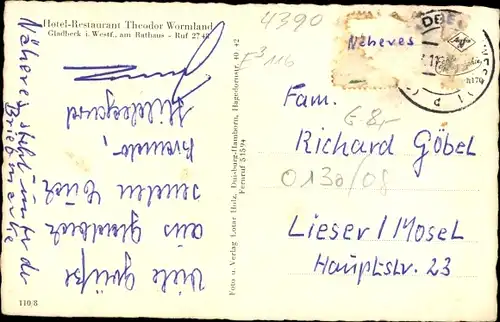 Hotel-Restaurant Theodor Wormland
Gladbeck i. Westf., am Rathaus - Ruf 27 48
Näheres steht unter der
Briefmarke
Viele Grüße
aus Gladbeck
senden Euch
Hildegard
110/8
Foto u. Verlag Lotar Holz, Duisburg-Hamborn, Hagedornstr. 40-42
Fernruf 51594
4390
E³ 116
Näheres
Fam.
Richard Göbel
0130/08
Lieser/Mosel
Hauptstr. 23